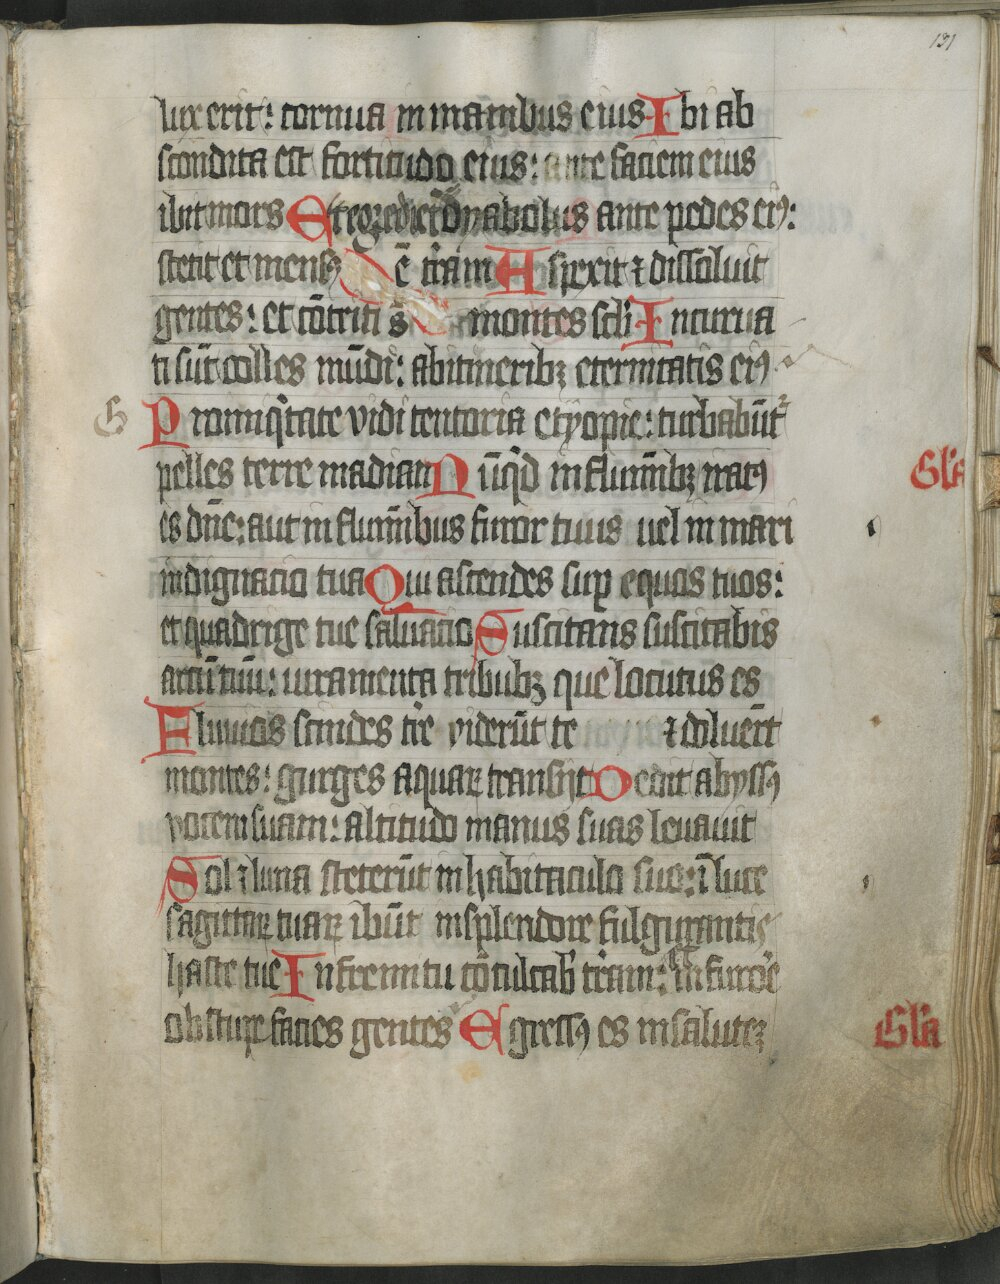 131
lux erit: cornua in manibus eius Ibi ab
scondita est fortitudo eius: ante faciem eius
ibit mors Et egredietur dyabolus ante pedes eiꝰ:
stetit et mensꝰ ē t̄ram Aspexit ⁊ dissoluit
gentes: et cōtriti s̄ montes sc̄li Incurua
ti sūt colles mūdi: ab itineribꝫ eternitatis eiꝰ
G
Pro iniq̄tate vidi tentoria etyopie: turbabūt᷑
pelles terre madian Nūq̄d in flumībꝫ iratꝰ
Gl'a
es dn̄e: aut in flumībus furor tuus uel in mari
indignatio tua Qui ascendes suꝑ equos tuos:
et quadrige tue saluatio Suscitans suscitabis
arcū tuū: iuramenta tribubꝫ que locutus es
Fluuios scindes tr̄e viderūt te ⁊ doluer̄t
montes: gurges aquaꝝ transijt Dedit abyssꝰ
vocem suam: altitudo manus suas leuauit
Sol ⁊ luna steterūt in habitaculo suo: ī luce
sagittaꝝ tuaꝝ ibūt in splendore fulgurantis
haste tue In fremitu cōculcab' t̄ram: et in furor̄e
obstupefacies gentes Egressꝰ es in salutēꝫ
Gl'a